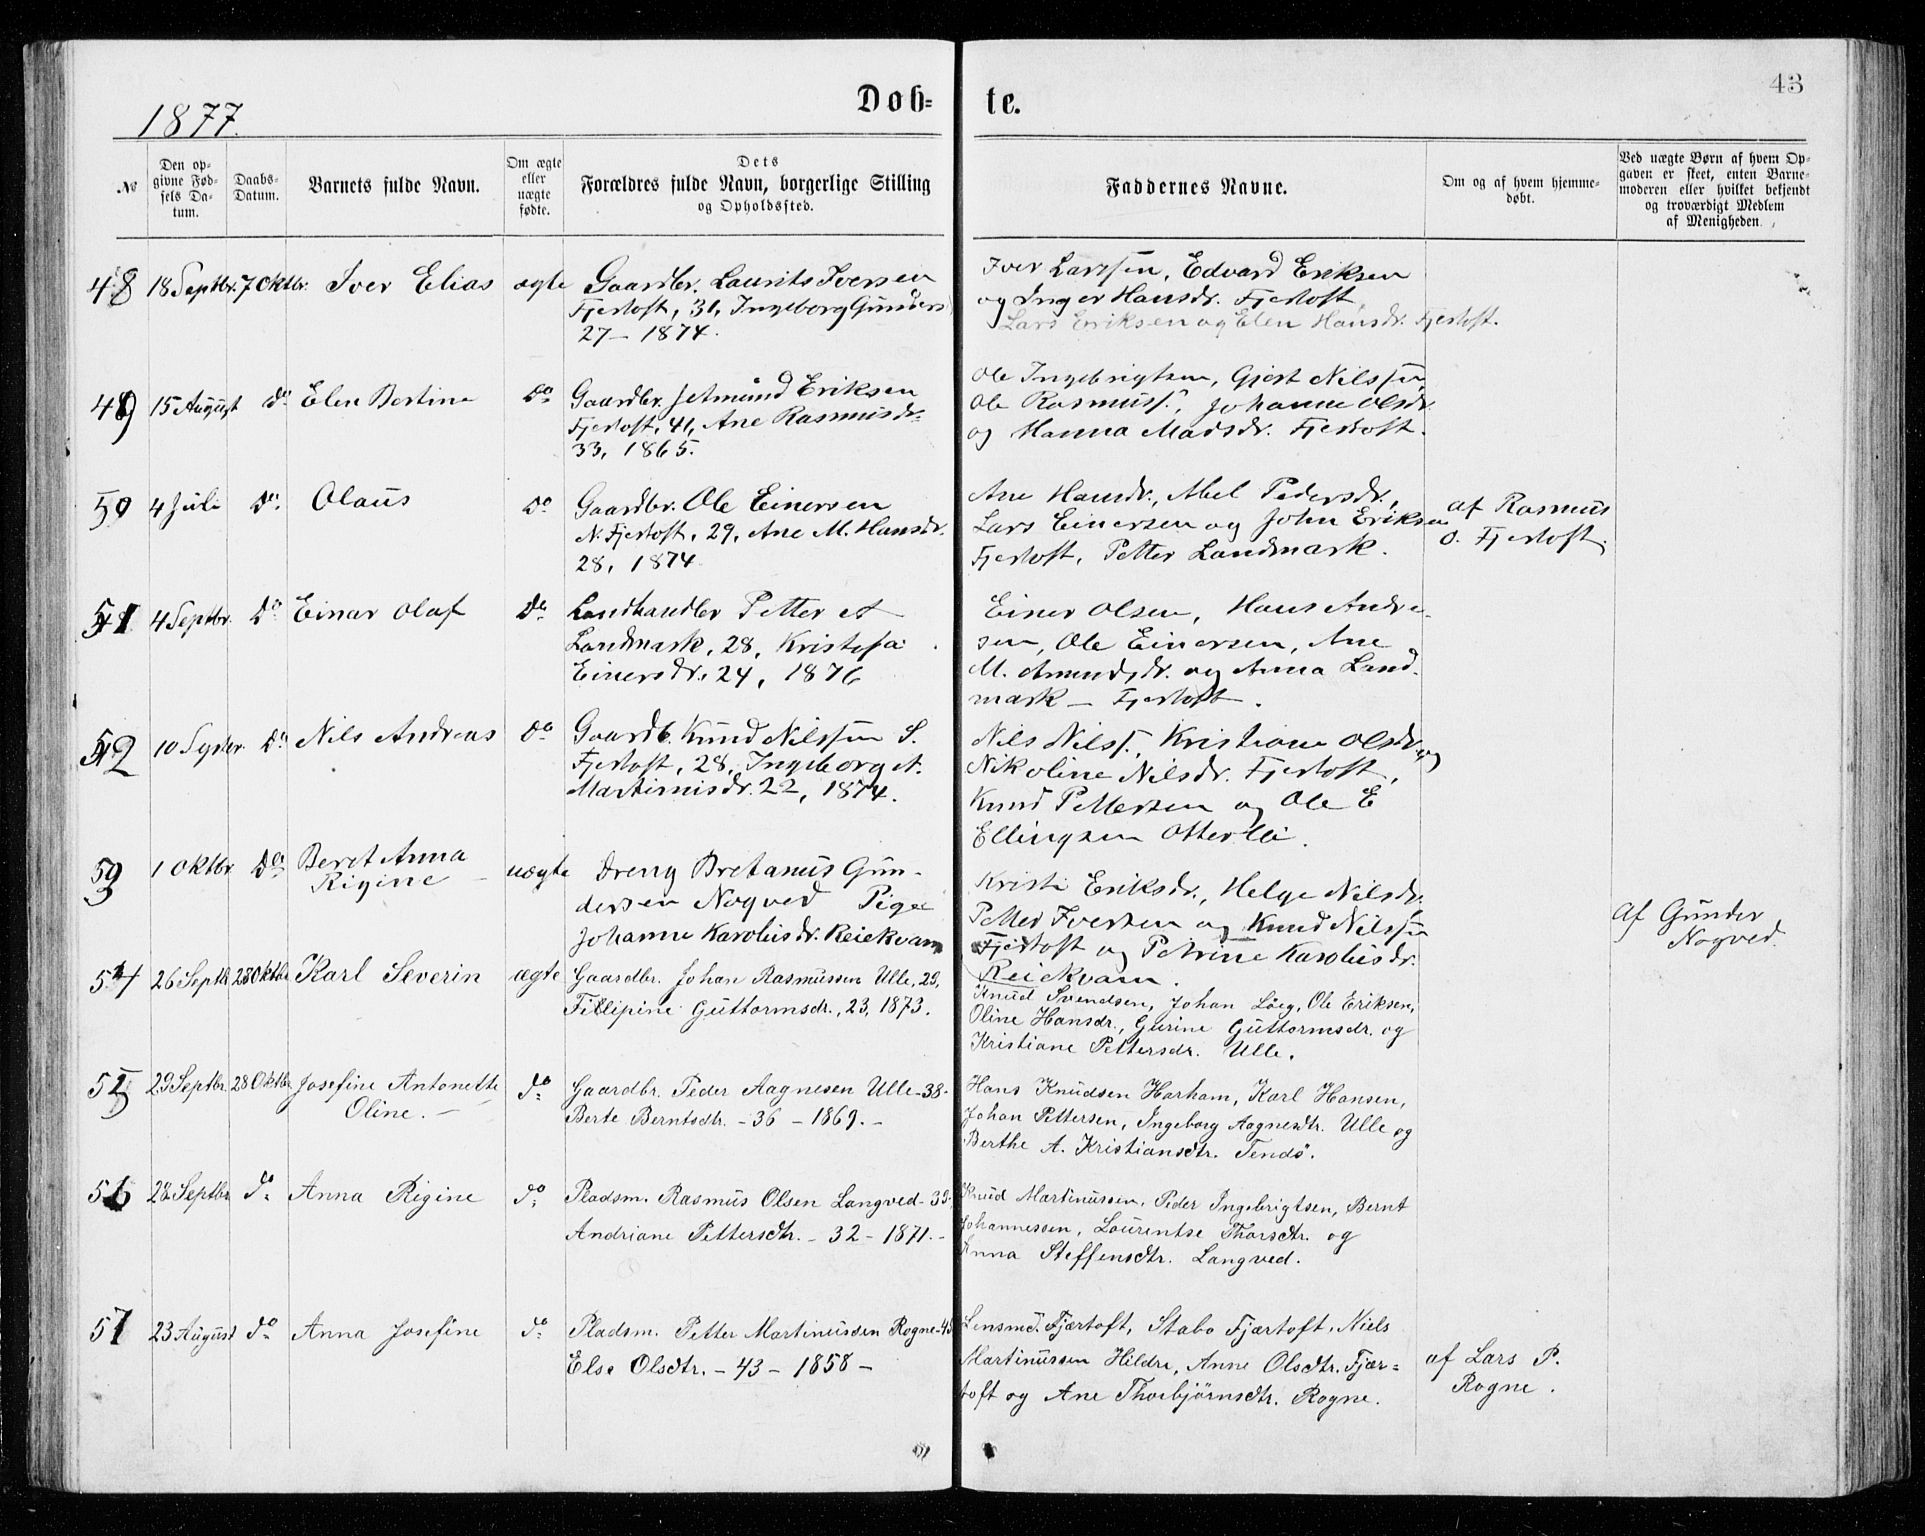 1877.
Døb=
te.
43
№
Den op-
givne Fød-
sels Da-
tum.
Daabs-
Datum.
Barnets fulde Navn.
Om ægte
eller
uægte
fødte.
Dets
Forældres fulde Navn, borgerlige Stilling
og Opholdssted.
Faddernes Navne.
Om og af hvem hjemme-
døbt.
Ved uægte Børn af hvem Op-
gaven er skeet, enten Barne-
moderen eller hvilket bekjendt
og troværdigt Medlem
af Menigheden.
48 18 Septbr. 7 Oktbr. Iver Elias ægte Gaardbr. Laurits Iversen
Fjertoft, 31, Ingeborg Gunders
27 – 1874.
Iver Larssen, Edvard Eriksen
og Inger Hansdr. Fjertoft,
Lars Eriksen og Elen Hansdr. Fjertoft.
49 15 August do Elen Bertine do Gaardbr. Jetmund Eriksen
Fjertoft, 41, Ane Rasmusdr.
33, 1865.
Ole Ingebrigtsen, Gjert Nilssen,
Ole Rasmuss., Johanne Olsdr.
og Hanna Madsdr. Fjertoft.
50 4 Juli do Olaus do Gaardbr. Ole Einersen
N. Fjertoft, 29, Ane M. Hansdr.
28, 1874.
Ane Hansdr., Abel Pedersdr.,
Lars Einersen og John Eriksen
Fjertoft, Petter Landmark.
af Rasmus
O. Fjertoft.
51 4 Septbr. do Einar Olaf do Landhandler Petter A
Landmark, 28, Kristofa
Einersdr. 24, 1876
Einer Olsen, Hans Andre-
sen, Ole Einersen, Ane
M. Amundsdr. og Anna Land-
mark – Fjertoft.
52 10 do Nils Andreas do Gaardb. Knud Nilssen S.
Fjertoft, 28, Ingeborg A.
Martinusdr. 22, 1874.
Nils Nilss., Kristiane Olsdr. og
Nikoline Nilsdr. Fjertoft,
Knud Pettersen og Ole E
Ellingsen Otterlei.
53 1 Oktbr. do Beret Anna
Rigine
uægte Dreng Bretanus Gun-
dersen Nogved Pige
Johanne Karolusdr. Reiekvam
Kristi Eriksdr., Helge Nilsdr.
Petter Iversen og Knud Nilssen
Fjertoft og Petrine Karolusdr.
Reiekvam.
Af Gunder
Nogved.
54 26 Septbr. 28 Oktbr. Karl Severin ægte Gaardbr. Johan Rasmussen Ulle, 29,
Fillipine Guttormsdr., 23, 1873.
Knud Svendsen, Johan Löeg, Ole Eriksen,
Oline Hansdr., Gurine Guttormsdr. og
Kristiane Pettersdr. Ulle.
55 29 Septbr. 28 Oktbr. Josefine Antonette
Oline. –
do Gaardbr. Peder Aagnesen Ulle – 38 –
Berte Berntsdtr. – 36 – 1869. –
Hans Knudsen Harham, Karl Hansen,
Johan Pettersen, Ingeborg Aagnesdtr. Ulle og
Berthe A. Kristiansdtr. Tendö.
56 28 Septbr do Anna Rigine do Pladsm. Rasmus Olsen Langved – 39 –
Andriane Pettersdtr. – 32 – 1871. –
Knud Martinussen, Peder Ingebrigtsen, Bernt
Johannessen, Laurentse Thorsdtr. og
Anna Steffensdtr. Langved.
57 23 August do Anna Josefine do Pladsm. Petter Martinussen Rogne – 43
Else Olsdtr. – 43 – 1858 –
Lensmd. Fjærtoft, Stabo Fjærtoft, Niels
Martinussen Hildre, Anne Olsdtr. Fjær=
toft og Ane Thorbjörnsdtr. Rogne.
af Lars P.
Rogne.